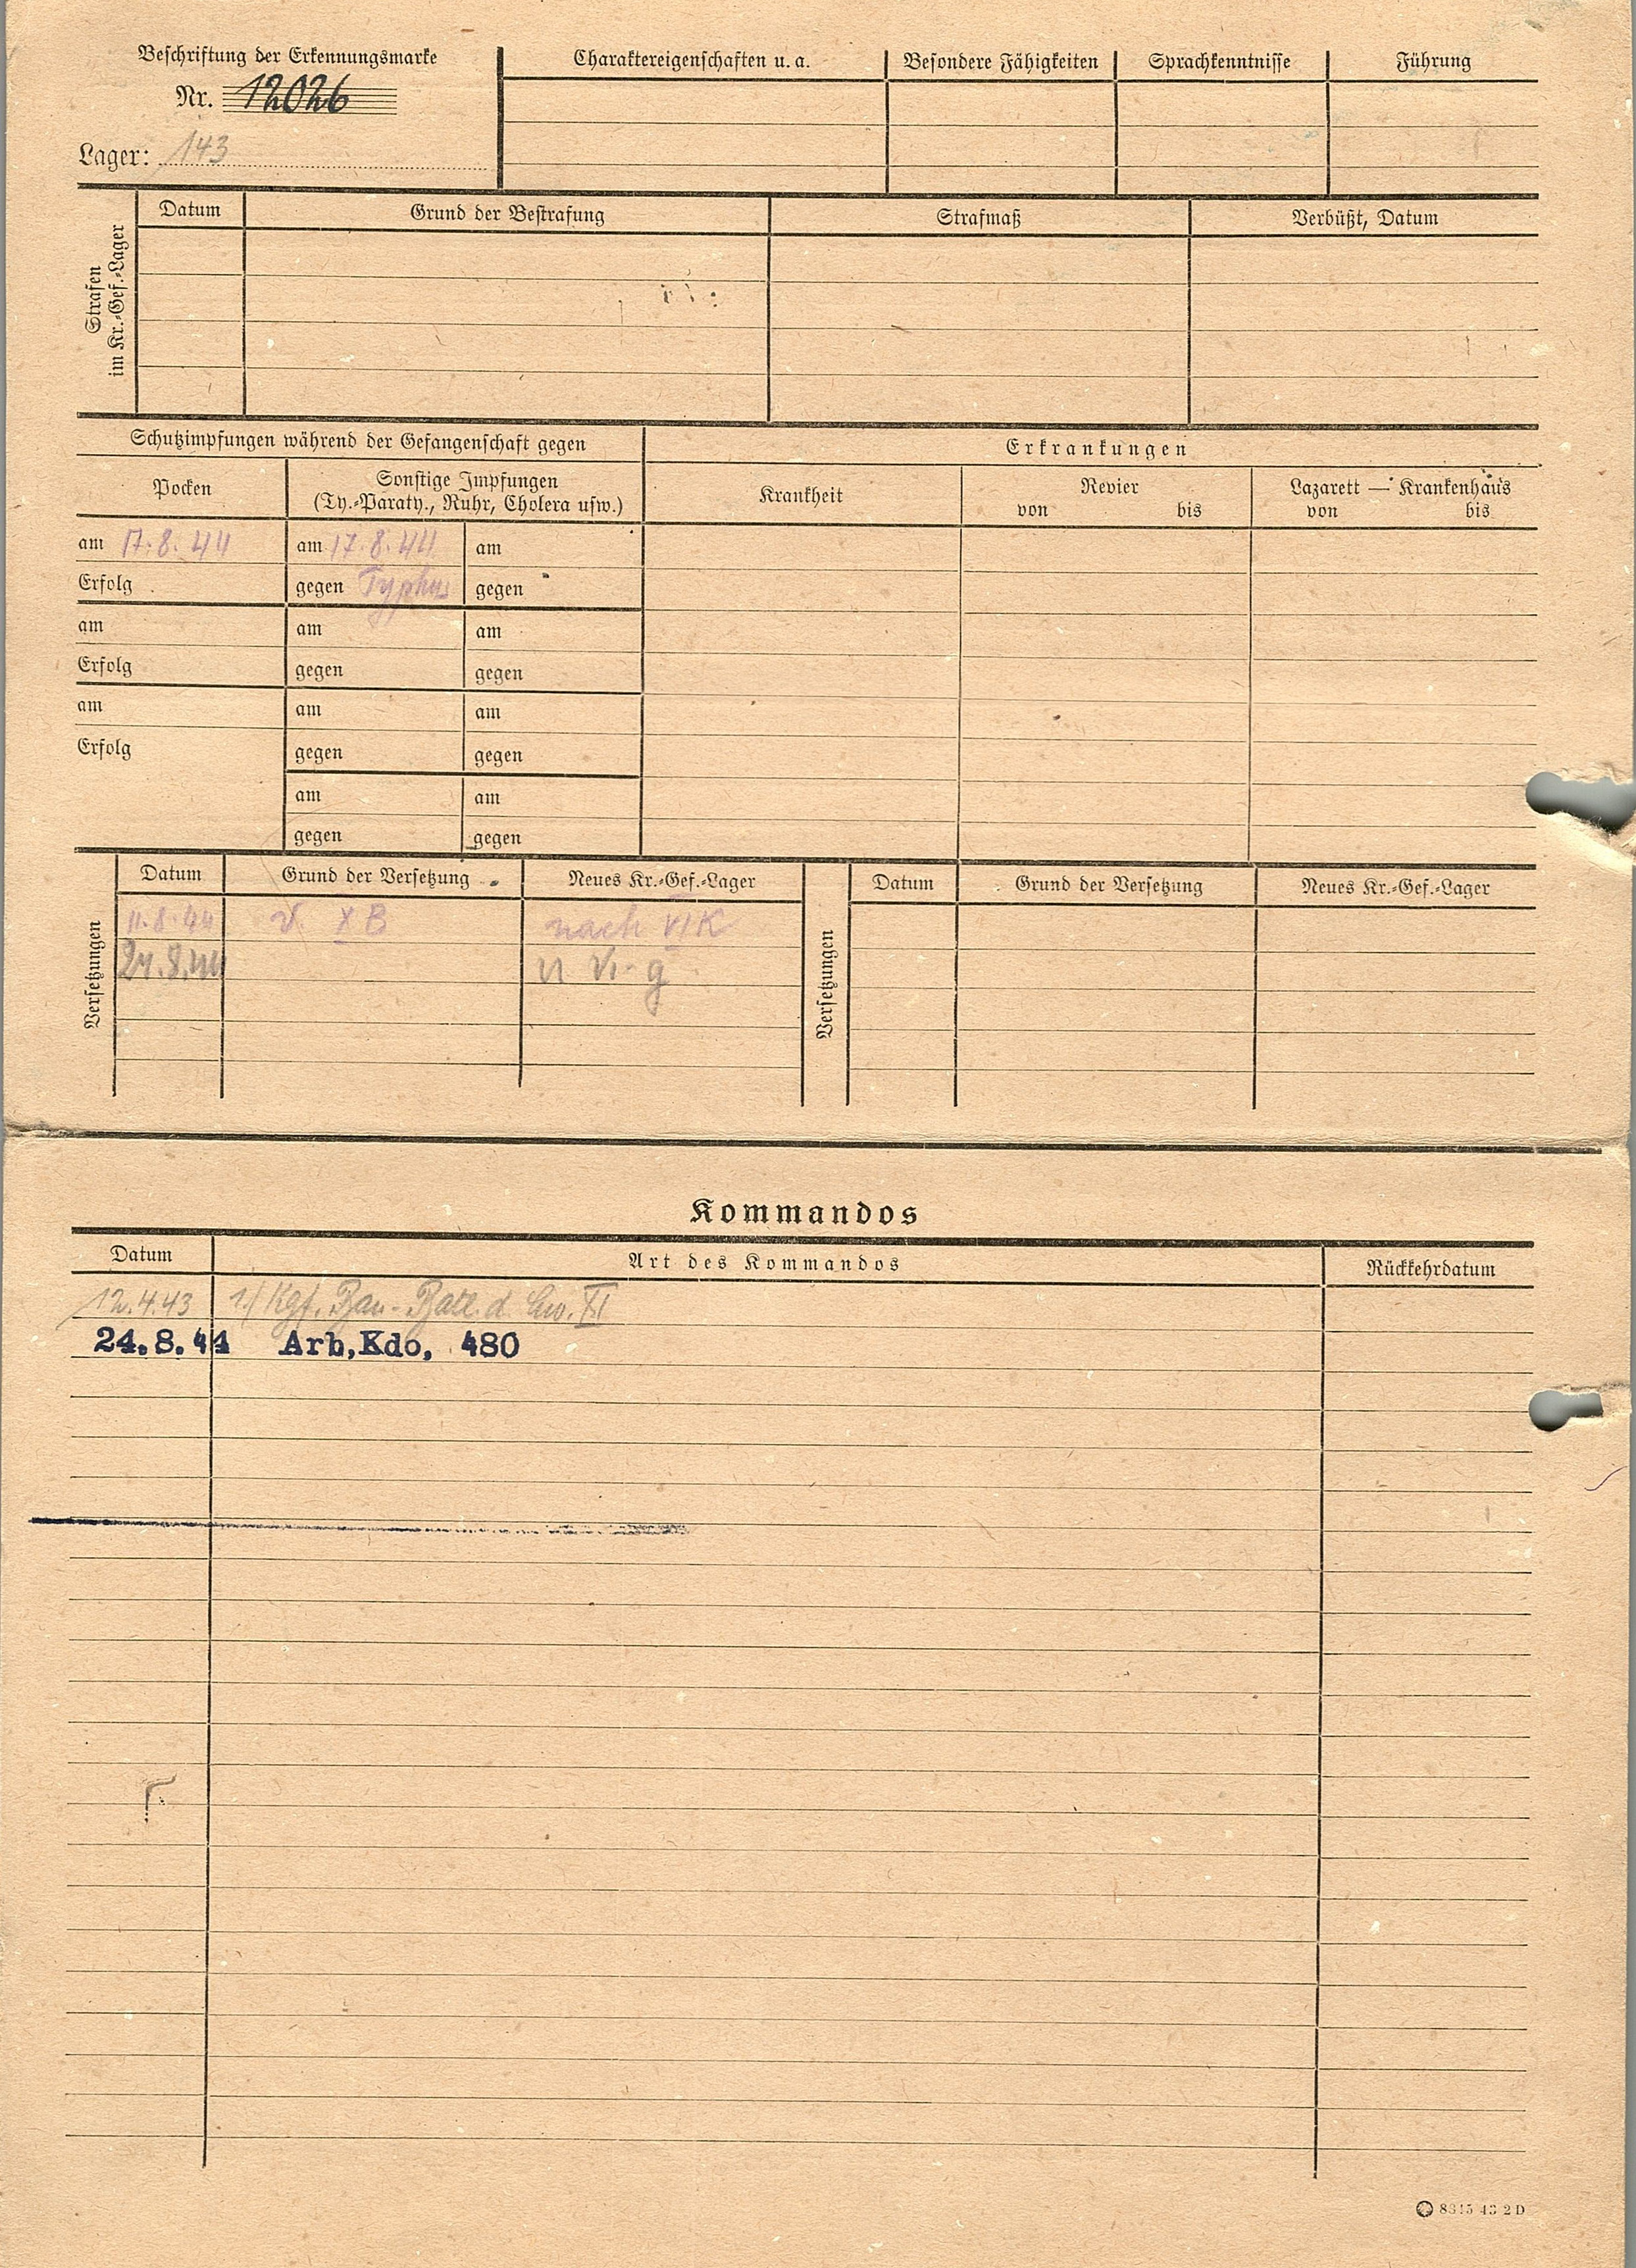 Beschriftung der Erkennungsmarke
Nr. 12026
Lager: 143
Charaktereigenschaften u. a. Besondere Fähigkeiten Sprachkenntnisse Führung
Strafen
im Kr.-Gef.-Lager
Datum Grund der Bestrafung Strafmaß Verbüßt, Datum
Schutzimpfungen während der Gefangenschaft gegen
Erkrankungen
Pocken
Sonstige Impfungen
(Ty.-Paraty., Ruhr, Cholera usw.)
Krankheit
Revier
von bis
Lazarett — Krankenhaus
von bis
am 17.8.44 am 17.8.44 am
Erfolg gegen Typhus gegen
am am am
Erfolg gegen gegen
am am am
Erfolg gegen gegen
am am
gegen gegen
Versetzungen
Datum Grund der Versetzung Neues Kr.-Gef.-Lager
11.8.44 v. X B nach VI K
24.8.44 VI-g
Versetzungen
Datum Grund der Versetzung Neues Kr.-Gef.-Lager
Kommandos
Datum Art des Kommandos Rückkehrdatum
12.4.43 1./Kgf. Bau-Batl. d. Luw. XI
24.8.44 Arb,Kdo, 480
8315 43 2 D